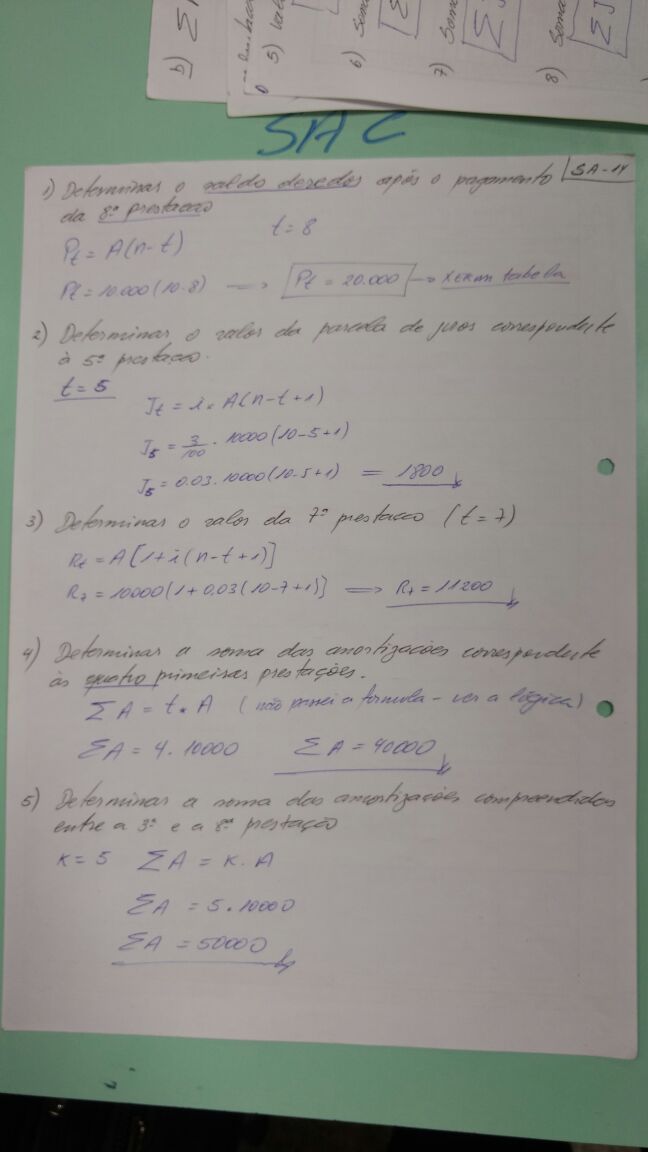 b) Σ
5) Valo
6) Soma
Σ
7) Soma
Σ J
8) Soma
Σ J
SAC
SA-14
1) Determinar o saldo devedor após o pagamento
da 8ª prestação
t = 8
Pt = A(n-t)
Pt = 10.000(10-8) ⟹ Pt = 20.000 → tabela
2) Determinar o valor da parcela de juros correspondente
à 5ª prestação.
t = 5
Jt = i. A(n-t+1)
J5 = 3/100 . 10000(10-5+1)
J5 = 0.03.10000(10-5+1) = 1800
3) Determinar o valor da 7ª prestação (t=7)
Rt = A[1+i(n-t+1)]
R7 = 10000(1+0,03(10-7+1)] ⟹ R7 = 11200
4) Determinar a soma das amortizações correspondente
às quatro primeiras prestações.
ΣA = t. A (não passei a formula - ver a lógica)
ΣA = 4. 10000 ΣA = 40000
5) Determinar a soma das amortizações compreendidas
entre a 3ª e a 8ª prestação
K = 5 ΣA = K. A
ΣA = 5.10000
ΣA = 50000